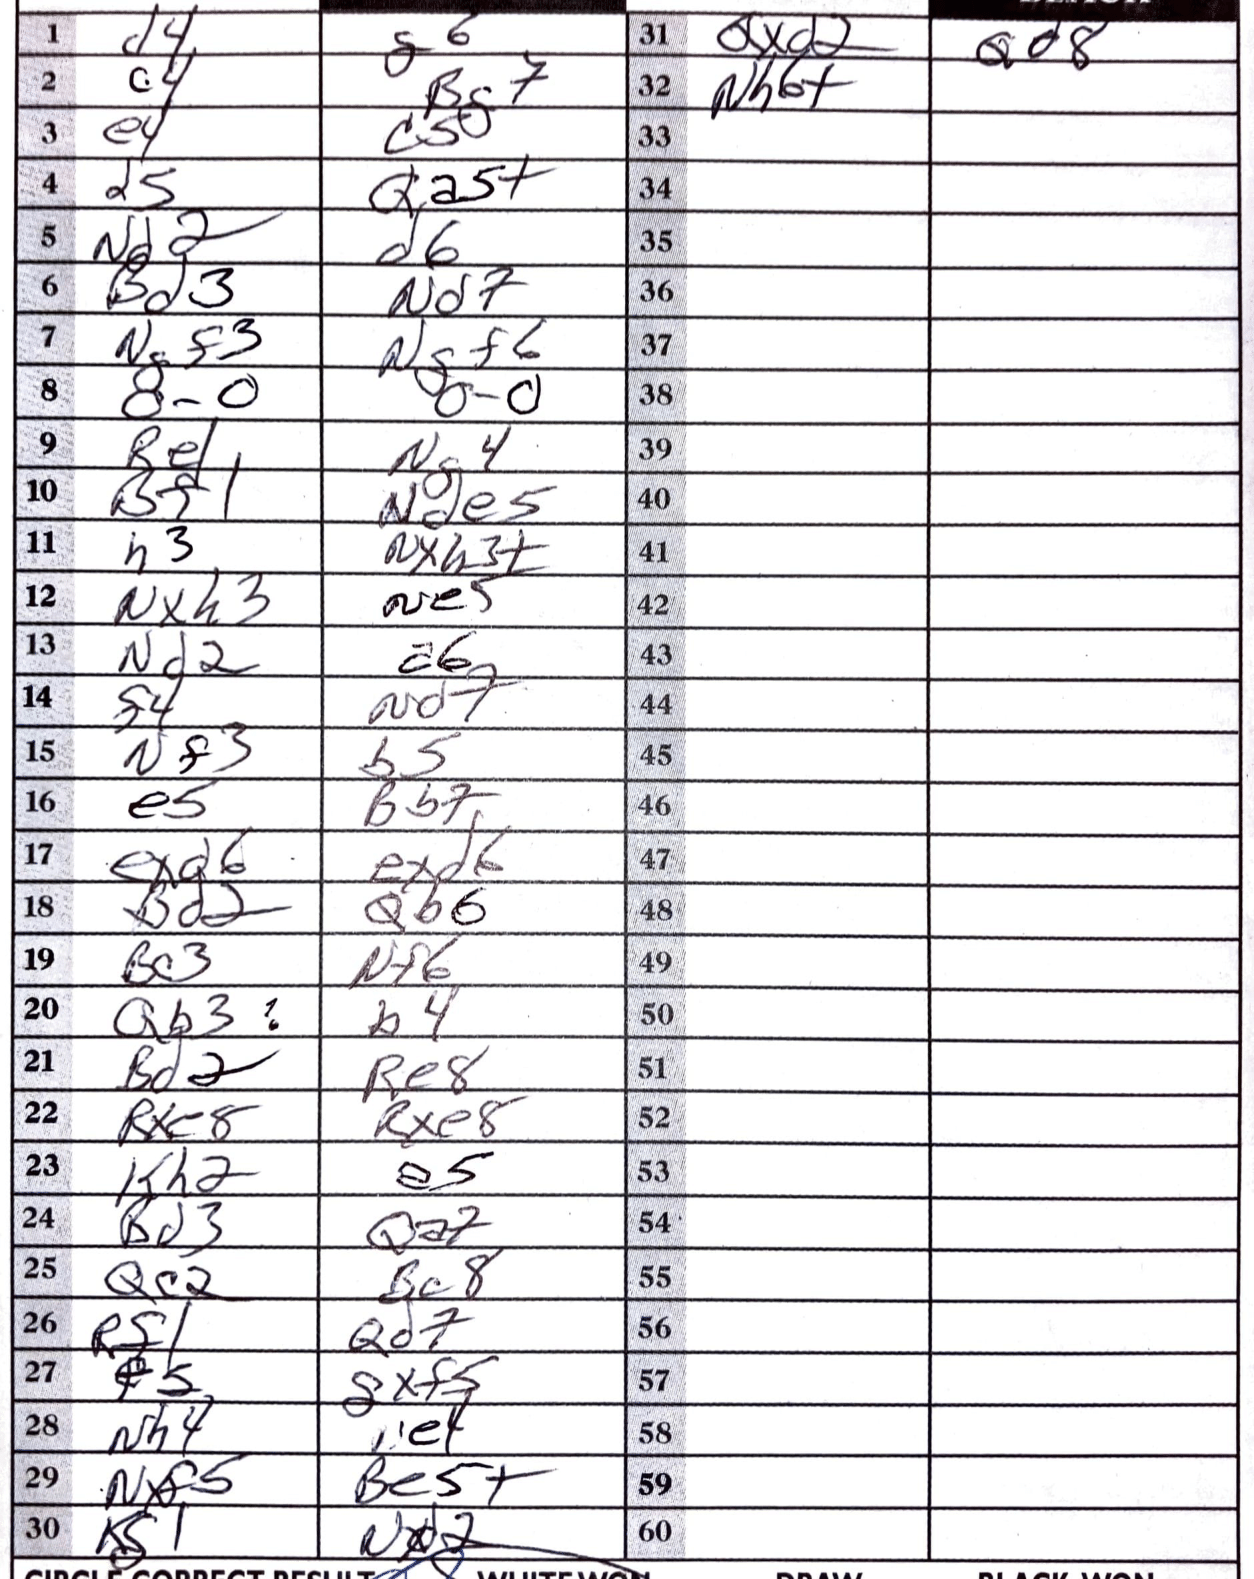 1 d4 g6 31 Qxd2 Qd8
2 c4 Bg7 32 Nh6+
3 e4 c5 33
4 d5 Qa5+ 34
5 Nd2 d6 35
6 Bd3 Nd7 36
7 Ngf3 Ngf6 37
8 0-0 0-0 38
9 Re1 Ng4 39
10 Bf1 Nde5 40
11 h3 Nxh3+ 41
12 Nxh3 Ne5 42
13 Nd2 a6 43
14 f4 Nd7 44
15 Nf3 b5 45
16 e5 Bb7 46
17 exd6 exd6 47
18 Bd2 Qb6 48
19 Bc3 Nf6 49
20 Qb3? b4 50
21 Bd2 Re8 51
22 Rxe8 Rxe8 52
23 Kh2 a5 53
24 Bd3 Qa7 54
25 Qc2 Bc8 55
26 Rf1 Qd7 56
27 f5 gxf5 57
28 Nh4 Ne4 58
29 Nxf5 Be5+ 59
30 Kg1 Nxd2 60
CIRCLE CORRECT RESULT WHITE WON DRAW BLACK WON